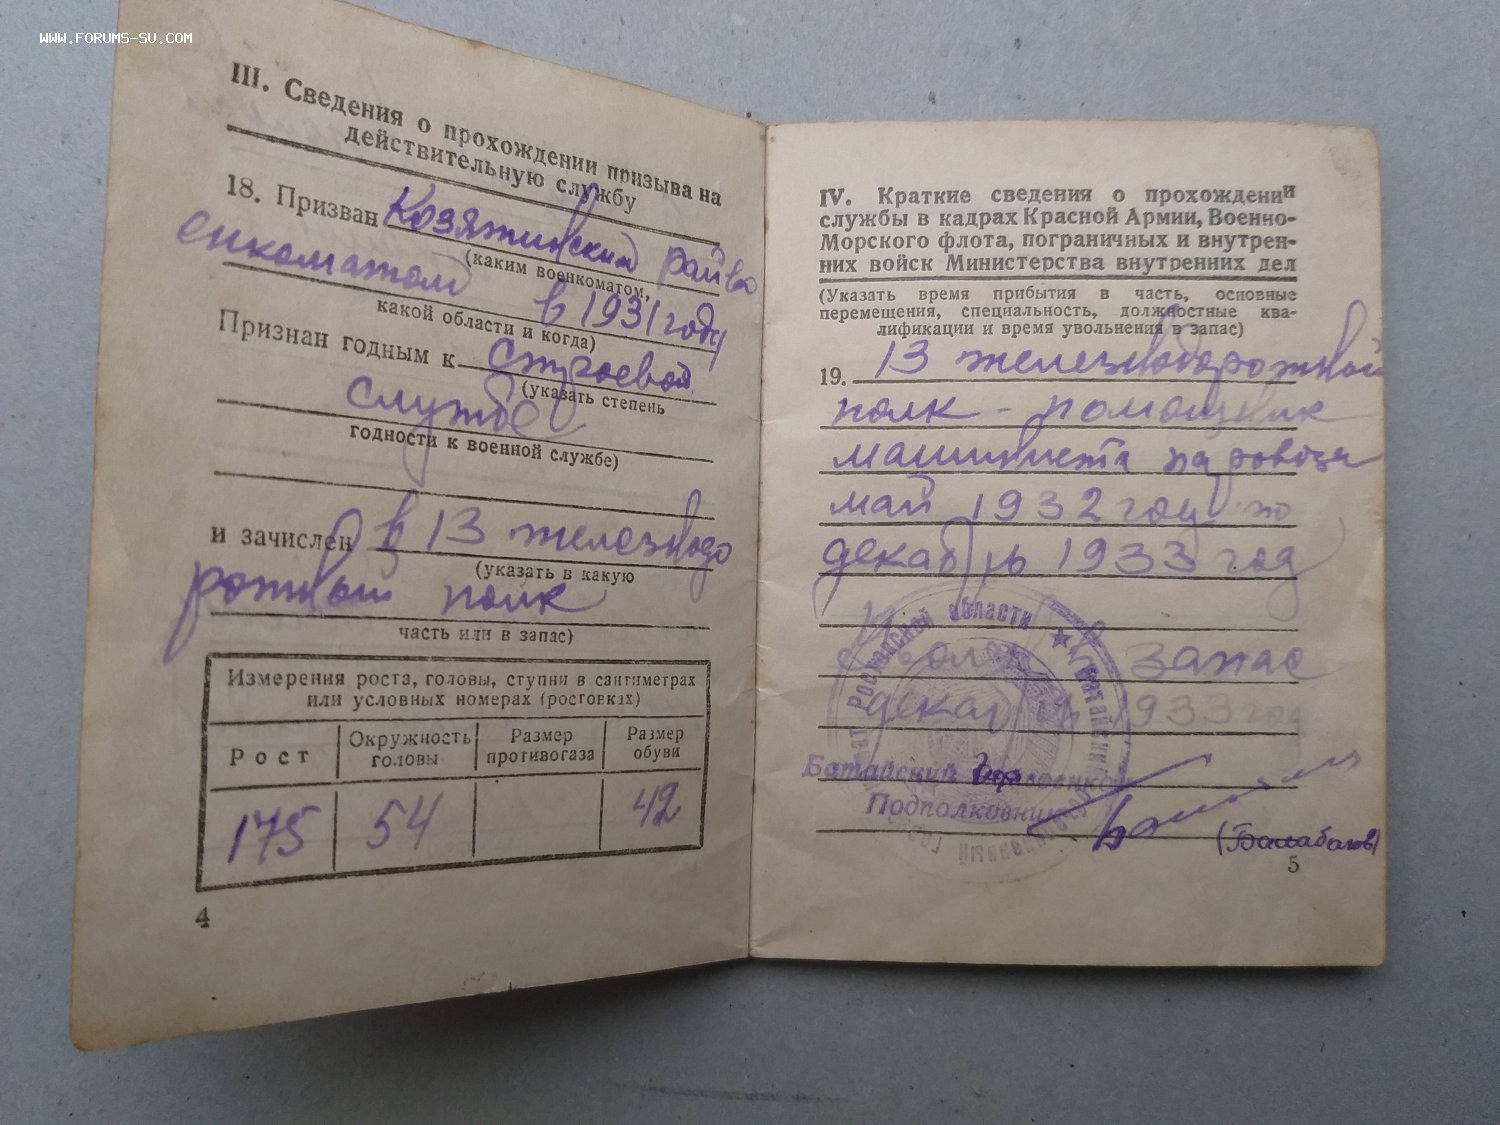 WWW.FORUMS-SU.COM
III. Сведения о прохождении призыва на
действительную службу
18. Призван Козятинский райво
(каким военкоматом,
енкоматом в 1931 году
какой области и когда)
Признан годным к строевой
(указать степень
службе
годности к военной службе)
и зачислен в 13 железнодо
(указать в какую
рожный полк
часть или в запас)
Измерения роста, головы, ступни в сантиметрах
или условных номерах (ростовках)
Рост
Окружность головы
Размер противогаза
Размер обуви
175
54
42
4
IV. Краткие сведения о прохождении
службы в кадрах Красной Армии, Военно-
Морского флота, пограничных и внутрен-
них войск Министерства внутренних дел
(Указать время прибытия в часть, основные
перемещения, специальность, должностные ква-
лификации и время увольнения в запас)
19. 13 железнодорожной
полк - помощник
машиниста паровоза
май 1932 год по
декабрь 1933 год
Уволен в запас
декабрь 1933 год
Батайский Горвоенком
Подполковник
(Балабанов)
Ростовской области ★ Батайский
5